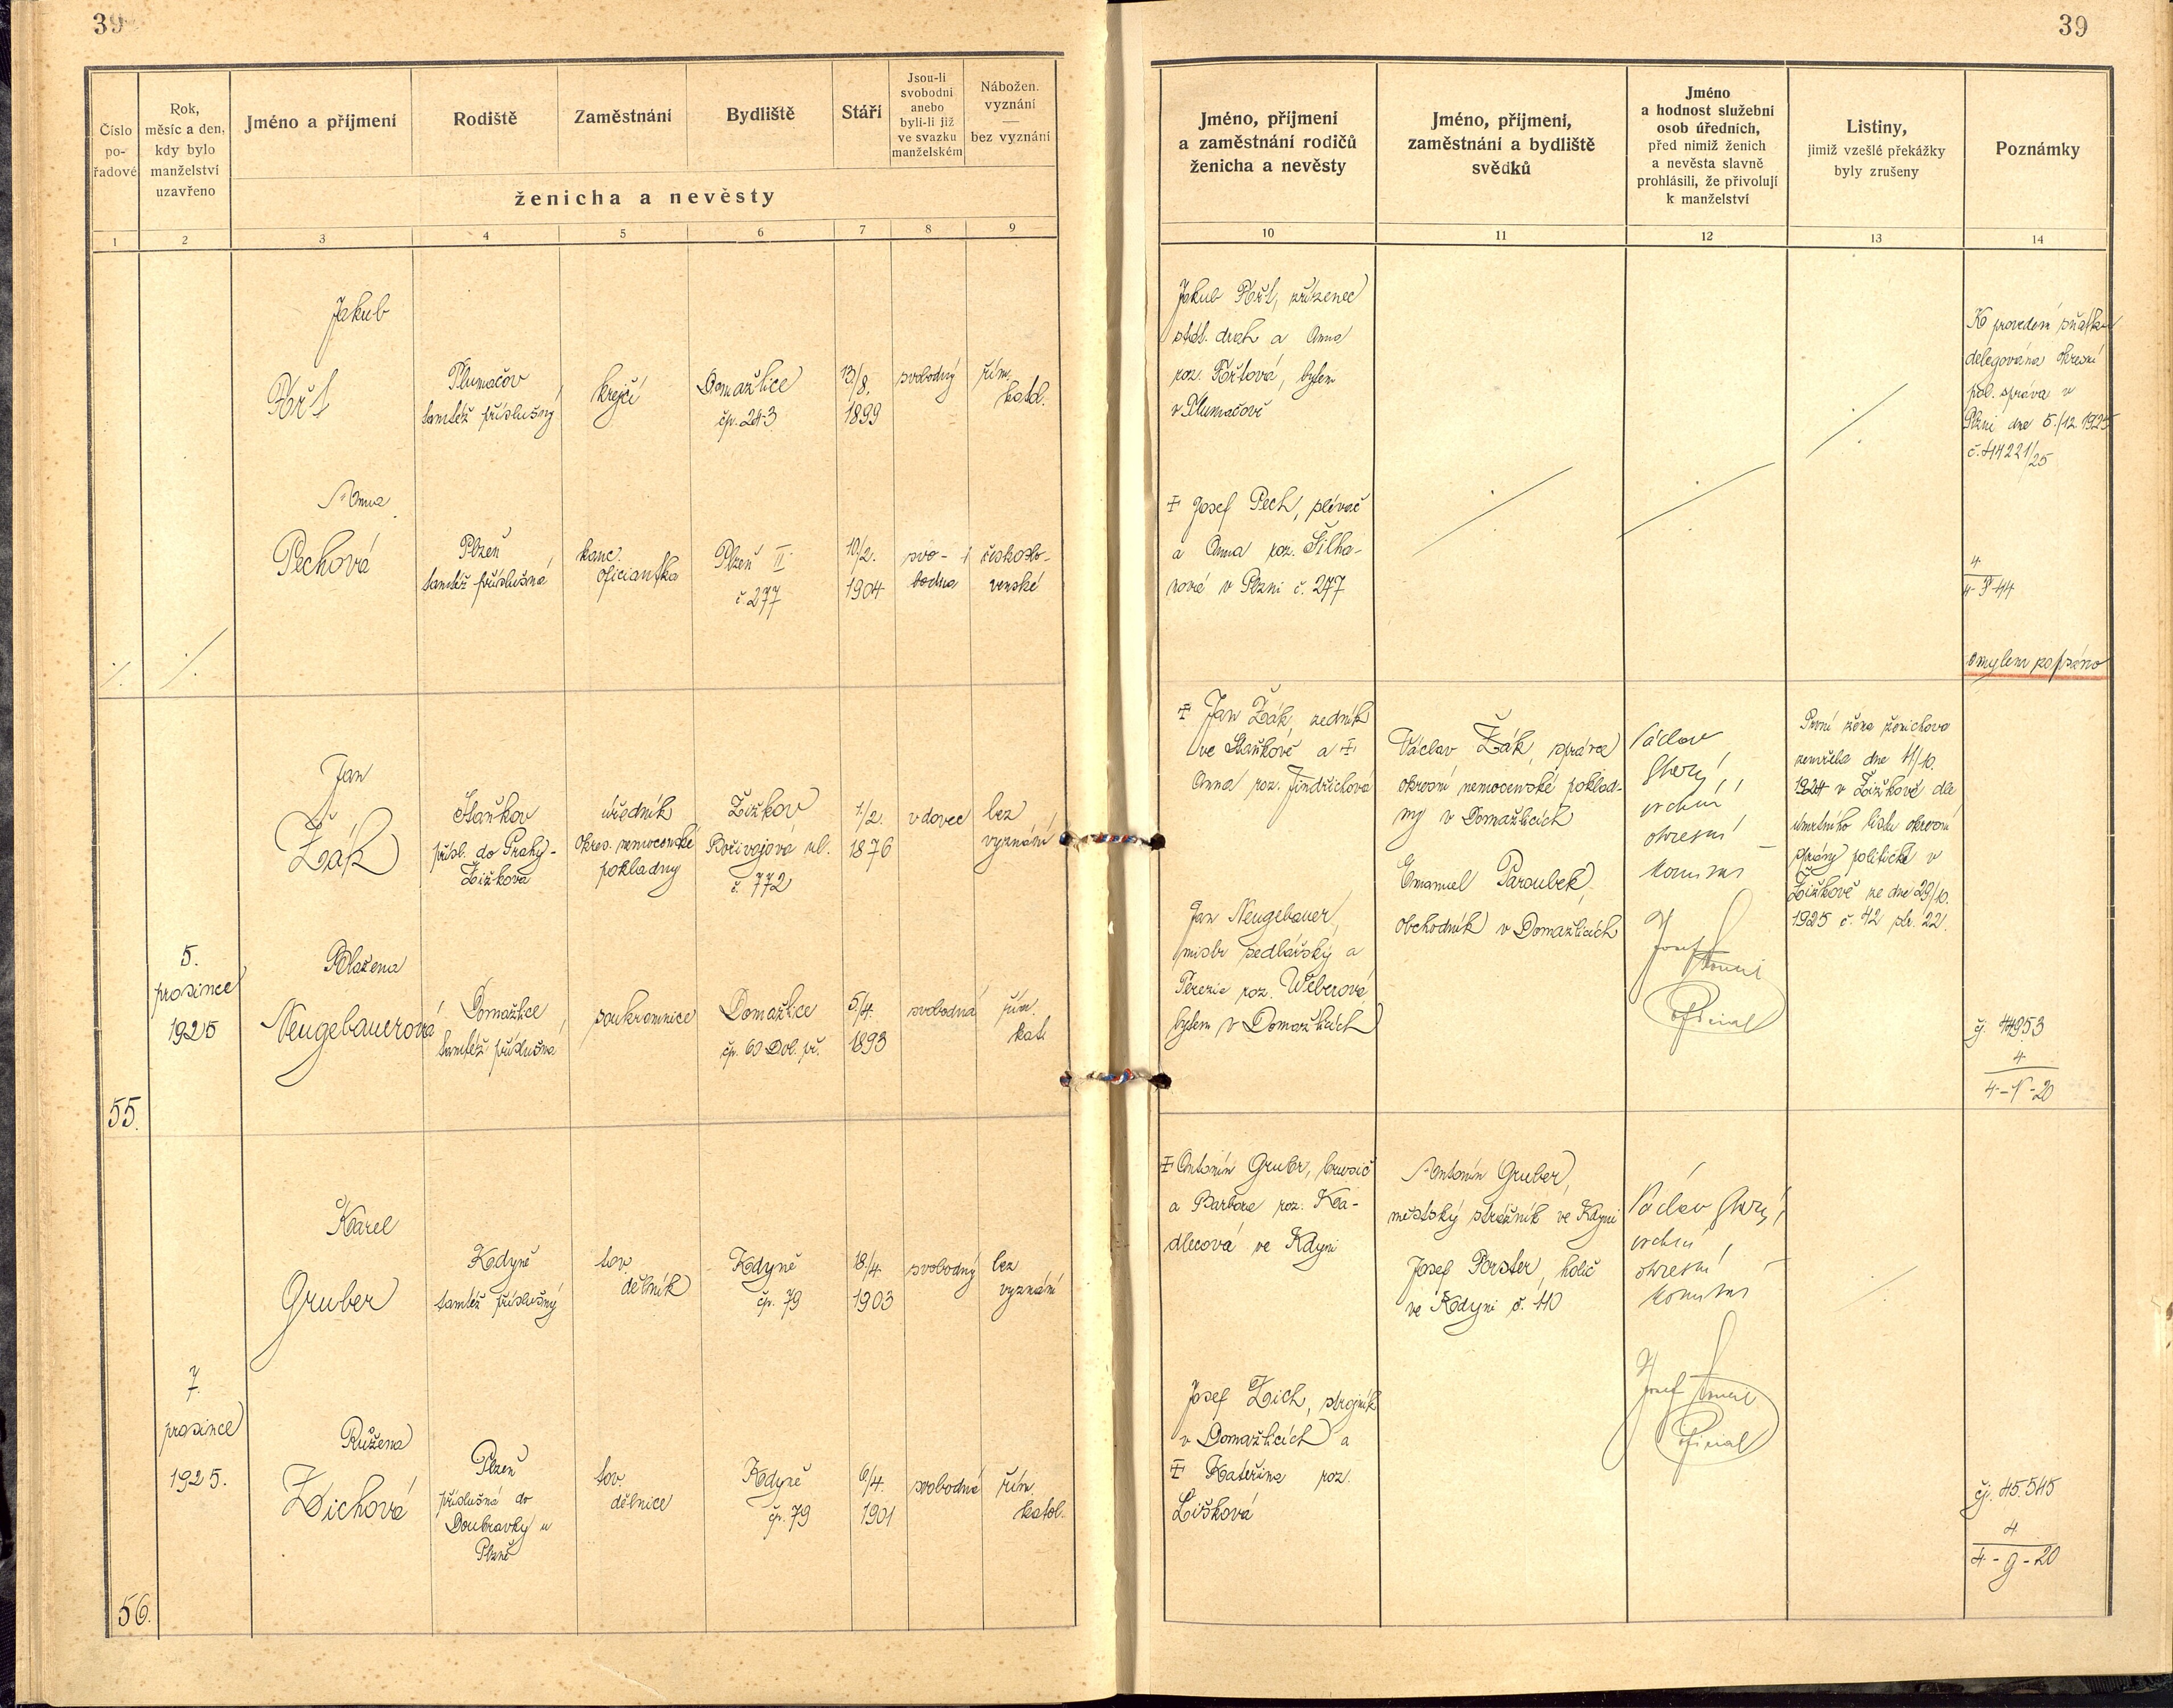 39
39
Číslo po- řadové
Rok, měsíc a den, kdy bylo manželství uzavřeno
Jméno a příjmení
Rodiště
Zaměstnání
Bydliště
Stáří
Jsou-li svobodni anebo byli-li již ve svazku manželském
Nábožen. vyznání — bez vyznání
ženicha a nevěsty
Jméno, příjmení a zaměstnání rodičů ženicha a nevěsty
Jméno, příjmení, zaměstnání a bydliště svědků
Jméno a hodnost služební osob úředních, před nimiž ženich a nevěsta slavně prohlásili, že přivolují k manželství
Listiny, jimiž vzešlé překážky byly zrušeny
Poznámky
1 2 3 4 5 6 7 8 9 10 11 12 13 14
Jakub
Plumačov
tamtéž příslušný
krejčí
Domažlice
čp. 243
13/8.
1899
svobodný
řím.
katol.
Jakub
zřízenec
stát. drah a Anna
roz.
bytem
v Plumačově
K provedení sňatku
delegována okresní
pol. správa v
Plzni dne 5./12 1925
č. 44221/25
Anna
Pechová
Plzeň
tamtéž příslušná
kanc.
oficiantka
Plzeň II
č. 277
10/2.
1904
svo-
bodna
českoslo-
venské
† Josef Pech, slévač
a Anna roz. Šilha-
nová v Plzni č. 277
4
omylem zapsáno
Jan
Žák
Staňkov
přísl. do Prahy-
Žižkova
úředník
okres. nemocenské
pokladny
Žižkov
Bořivojova ul.
č. 772
1/2.
1876
vdovec
bez
vyznání
† Jan Žák, zedník
ve Staňkově a †
Anna roz. Jindřichová
Václav Žák, správce
okresní nemocenské poklad-
ny v Domažlicích
Emanuel Paroubek,
obchodník v Domažlicích
Václav
vrchní
okresní
komisař
Josef
Oficial
První žena ženichova
zemřela dne 11/10.
1924 v Žižkově dle
úmrtního listu okresní
správy politické v
Žižkově ze dne 29/10.
1925 č. 42 str. 22.
5.
prosince
1925
Blažena
Neugebauerová
Domažlice
tamtéž příslušná
soukromnice
Domažlice
čp. 60 Dol. př.
5/4.
1893
svobodná
řím.
kat.
Jan Neugebauer,
mistr sedlářský a
Terezie roz. Weberová,
bytem v Domažlicích
čj. 44953
4
4-N-20
55.
Karel
Gruber
Kdyně
tamtéž příslušný
tov.
dělník
Kdyně
čp. 79
18/4.
1903
svobodný
bez
vyznání
† Antonín Gruber, brusič
a Barbora roz. Ka-
dlecová ve Kdyni
Antonín Gruber,
městský strážník ve Kdyni
Josef Forster, holič
ve Kdyni č. 110
Václav
vrchní
okresní
komisař
Josef
Oficial
7.
prosince
1925.
Růžena
Zichová
Plzeň
příslušná do
Doubravky u
Plzně
tov.
dělnice
Kdyně
čp. 79
6/4.
1901
svobodná
řím.
katol.
Josef Zich, strojník
v Domažlicích a
† Kateřina roz.
Lišková
čj. 45.545
4
4-G-20
56.